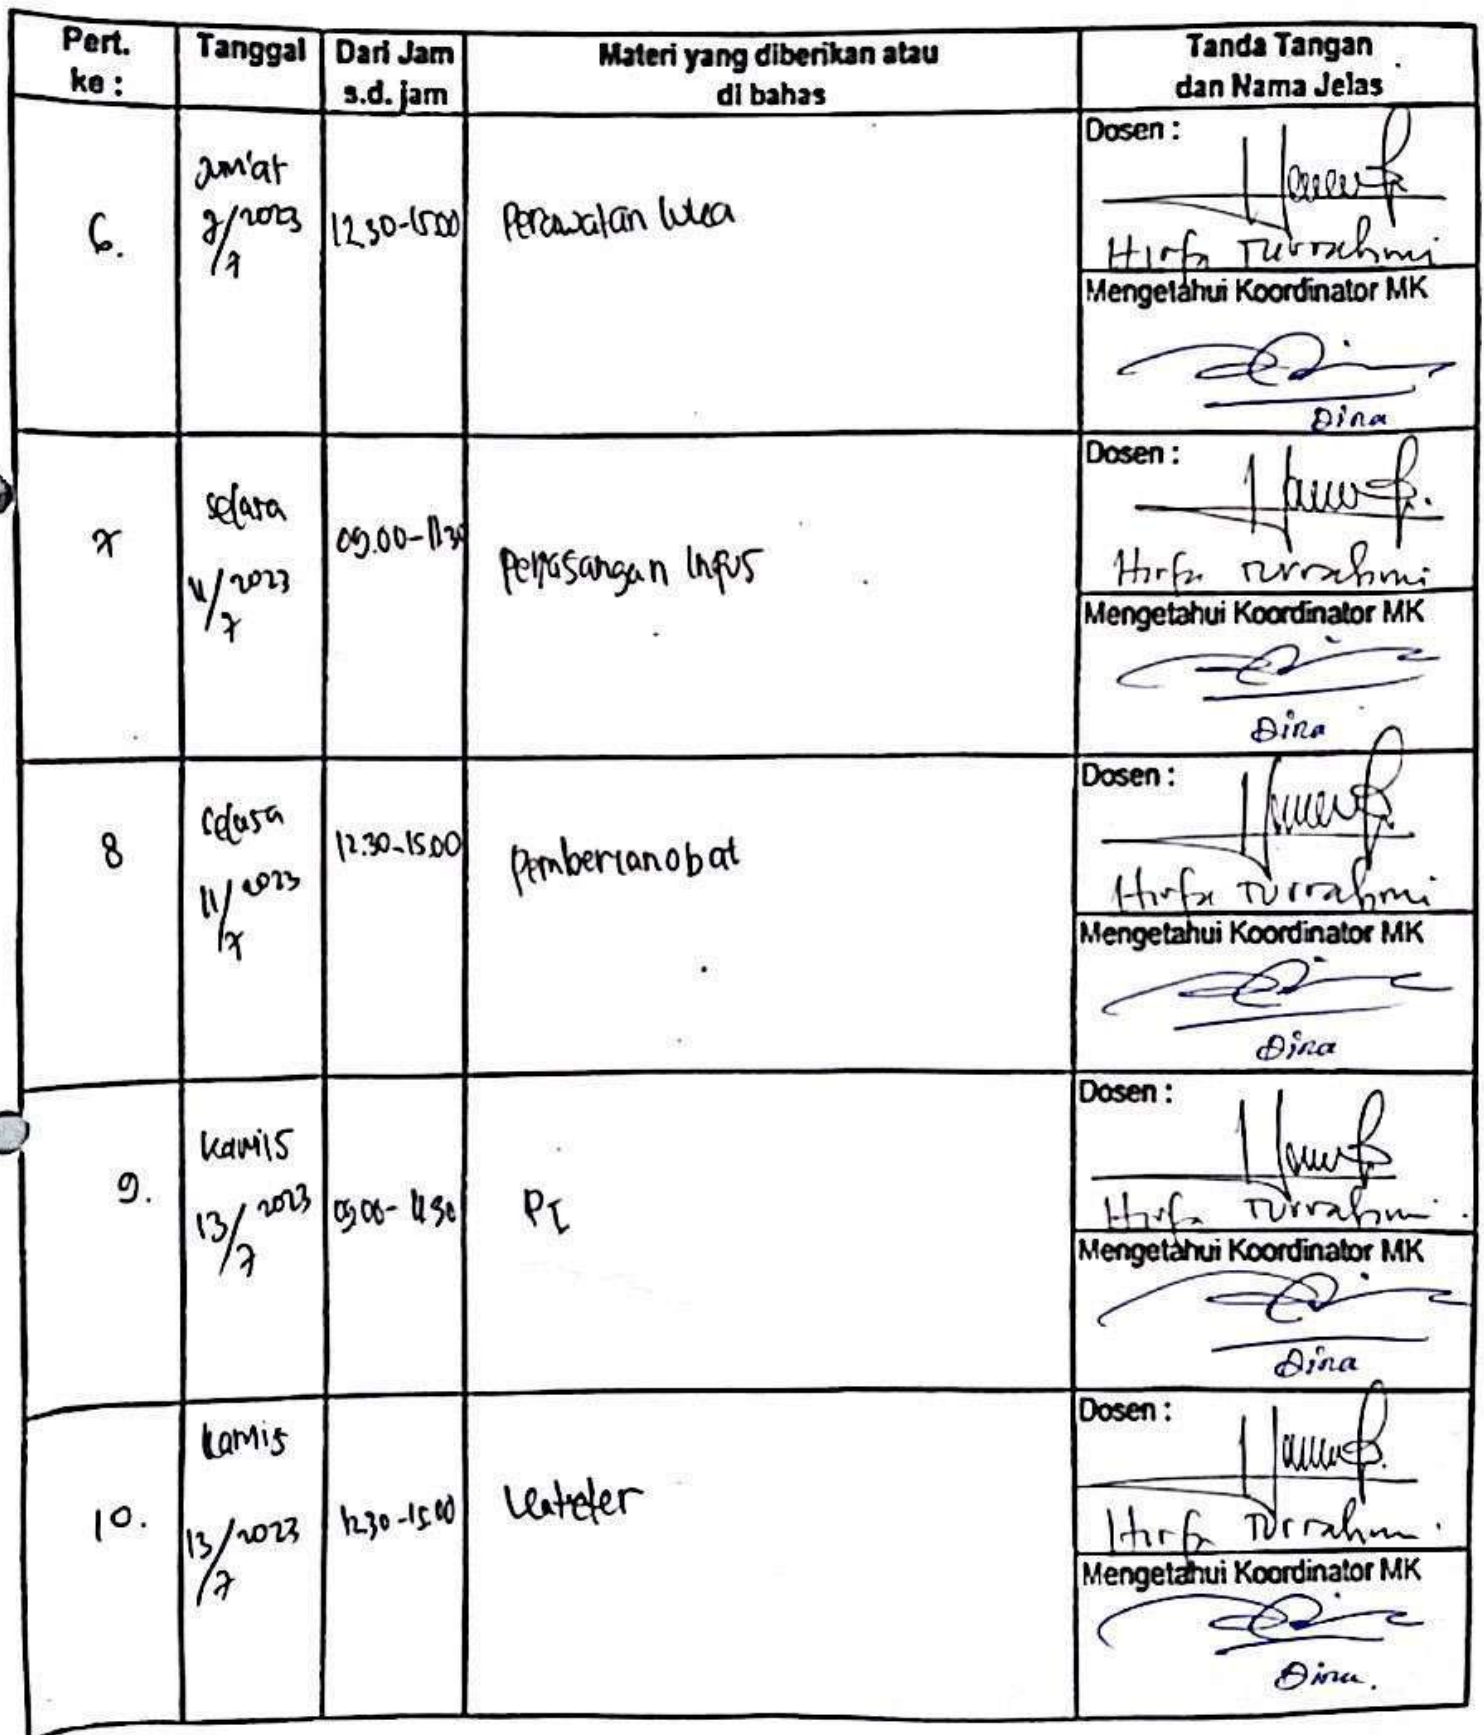 Pert. ke :
Tanggal
Dari Jam s.d. jam
Materi yang diberikan atau di bahas
Tanda Tangan dan Nama Jelas
6.
Jum'at
7/2023
7
12.30-15.00
Perawatan luka
Dosen :
Hirfa Turrahmi
Mengetahui Koordinator MK
Dina
7
Selasa
11/2023
7
09.00-11.30
Pemasangan Infus
Dosen :
Hirfa Turrahmi
Mengetahui Koordinator MK
Dina
8
Selasa
11/2023
7
12.30-15.00
Pemberian obat
Dosen :
Hirfa Turrahmi
Mengetahui Koordinator MK
Dina
9.
Kamis
13/2023
7
09.00-11.30
PI
Dosen :
Hirfa Turrahmi
Mengetahui Koordinator MK
Dina
10.
Kamis
13/2023
7
12.30-15.00
Kateter
Dosen :
Hirfa Turrahmi
Mengetahui Koordinator MK
Dina.